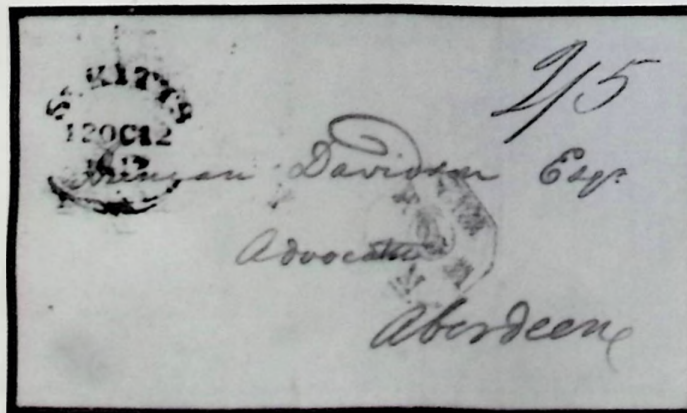 St KITTS
12OC12
2/5
Duncan Davidson Esqr
Advocate
Aberdeen